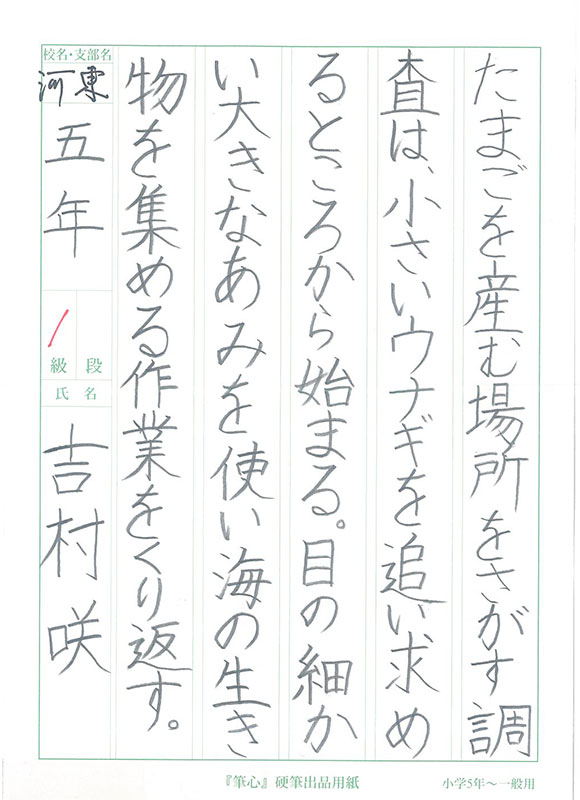 たまごを産む場所をさがす調
査は、小さいウナギを追い求め
るところから始まる。目の細か
い大きなあみを使い海の生き
物を集める作業をくり返す。
校名・支部名
河東
五年
1
級 段
氏 名
吉村咲
『筆心』硬筆出品用紙
小学5年〜一般用